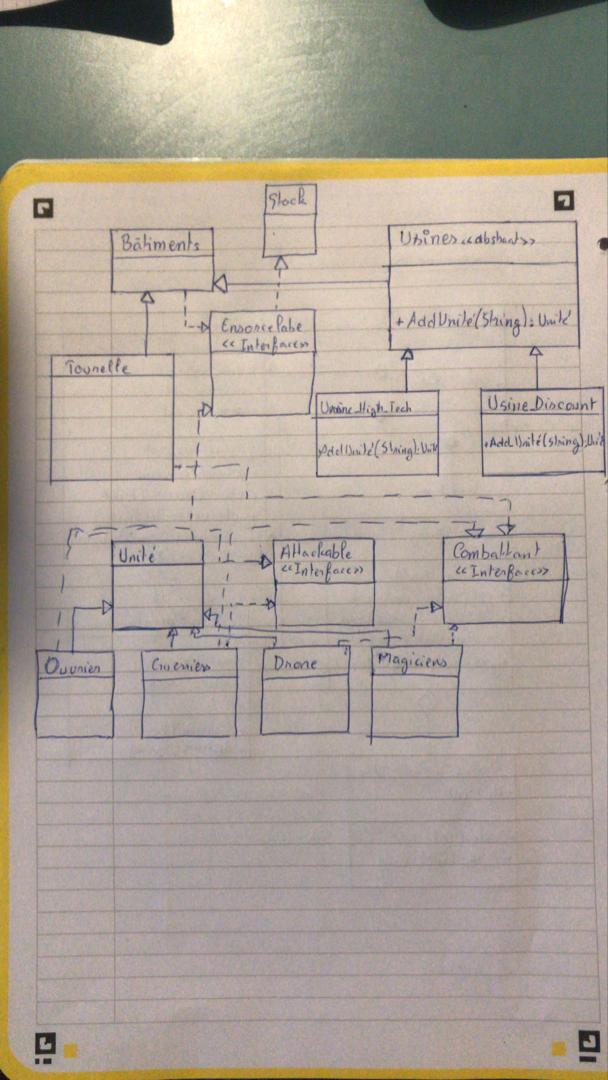 Stock
Bâtiments
Usines <<abstract>>
+ AddUnité(String): Unité
Ensorcelabe
<< Interface>>
Tourelle
Usine_High_Tech
+AddUnité(String): Unit
Usine_Discount
+AddUnité(String): Unité
Unité
Attackable
<<Interface>>
Combattant
<<Interface>>
Ouvrier
Guerriers
Drone
Magiciens